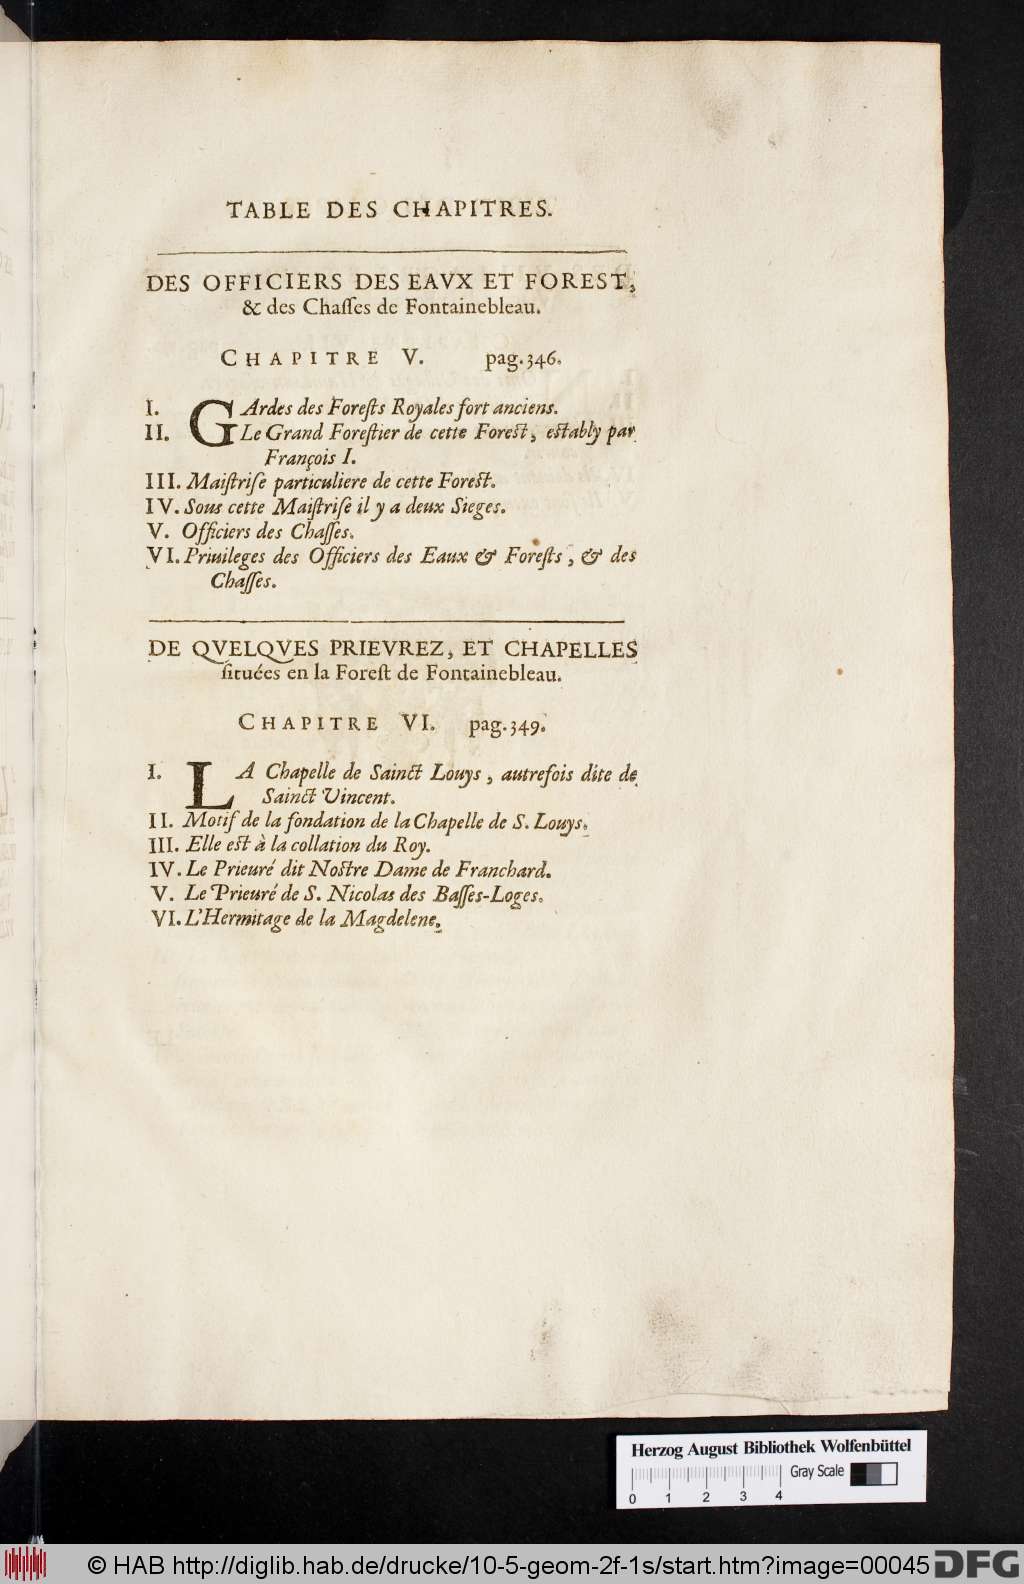 TABLE DES CHAPITRES.
DES OFFICIERS DES EAVX ET FOREST,
& des Chaſſes de Fontainebleau.
CHAPITRE V. pag. 346.
I. GArdes des Foreſts Royales fort anciens.
II. Le Grand Foreſtier de cette Foreſt, eſtably par
François I.
III. Maiſtriſe particuliere de cette Foreſt.
IV. Sous cette Maiſtriſe il y a deux Sieges.
V. Officiers des Chaſſes.
VI. Priuileges des Officiers des Eaux & Foreſts, & des
Chaſſes.
DE QVELQVES PRIEVREZ, ET CHAPELLES
ſituées en la Foreſt de Fontainebleau.
CHAPITRE VI. pag. 349.
I. LA Chapelle de Sainct Louys, autrefois dite de
Sainct Vincent.
II. Motif de la fondation de la Chapelle de S. Louys.
III. Elle eſt à la collation du Roy.
IV. Le Prieuré dit Noſtre Dame de Franchard.
V. Le Prieuré de S. Nicolas des Baſſes-Loges.
VI. L'Hermitage de la Magdelene.
Herzog August Bibliothek Wolfenbüttel
Gray Scale
0 1 2 3 4
© HAB http://diglib.hab.de/drucke/10-5-geom-2f-1s/start.htm?image=00045 DFG